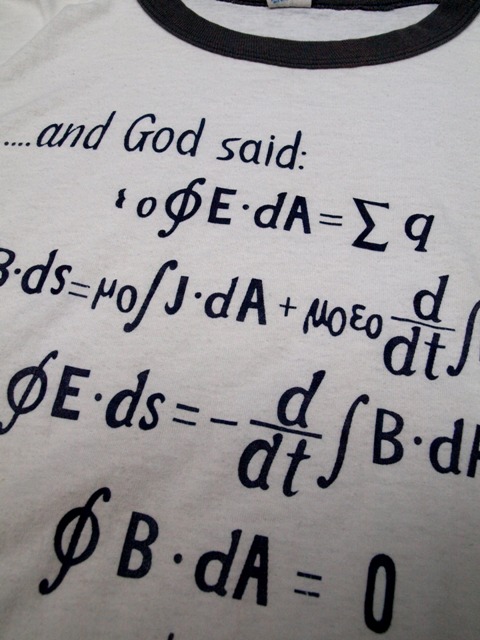 ....and God said:
ε0∮E·dA=Σq
B·ds=μ0∫J·dA+μ0ε0 d/dt ∫
∮E·ds=-d/dt ∫B·dA
∮B·dA=0